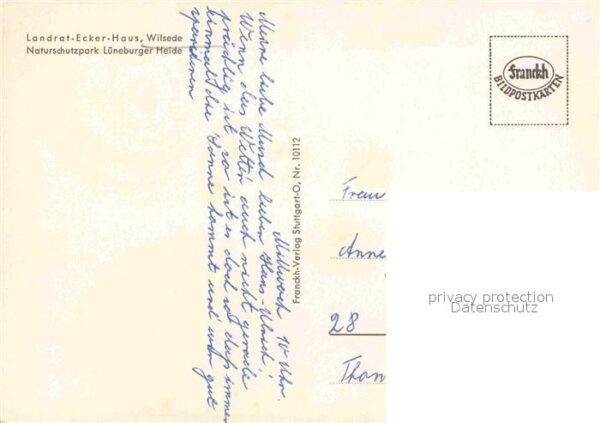 Landrat-Ecker-Haus, Wilsede
Naturschutzpark Lüneburger Heide
Franckh
BILDPOSTKARTEN
Franckh-Verlag Stuttgart-O, Nr. 10112
Mittwoch 10 Uhr.
Meine liebe lieber Hans-Ulrich!
Wenn das Wetter auch nicht gerade
prächtig ist so ist es doch so daß immer
einmal die Sonne kommt und uns gut
Frau
Anne
28
privacy protection
Datenschutz